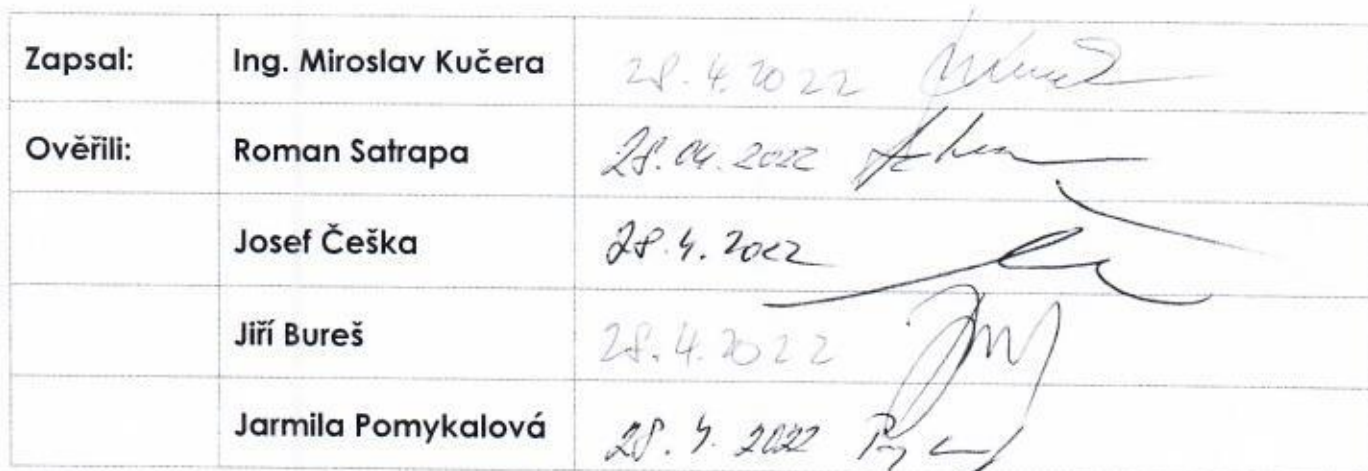 Zapsal: Ing. Miroslav Kučera 28.4.2022
Ověřili: Roman Satrapa 28.04.2022
Josef Češka 28.4.2022
Jiří Bureš 28.4.2022
Jarmila Pomykalová 28.4.2022